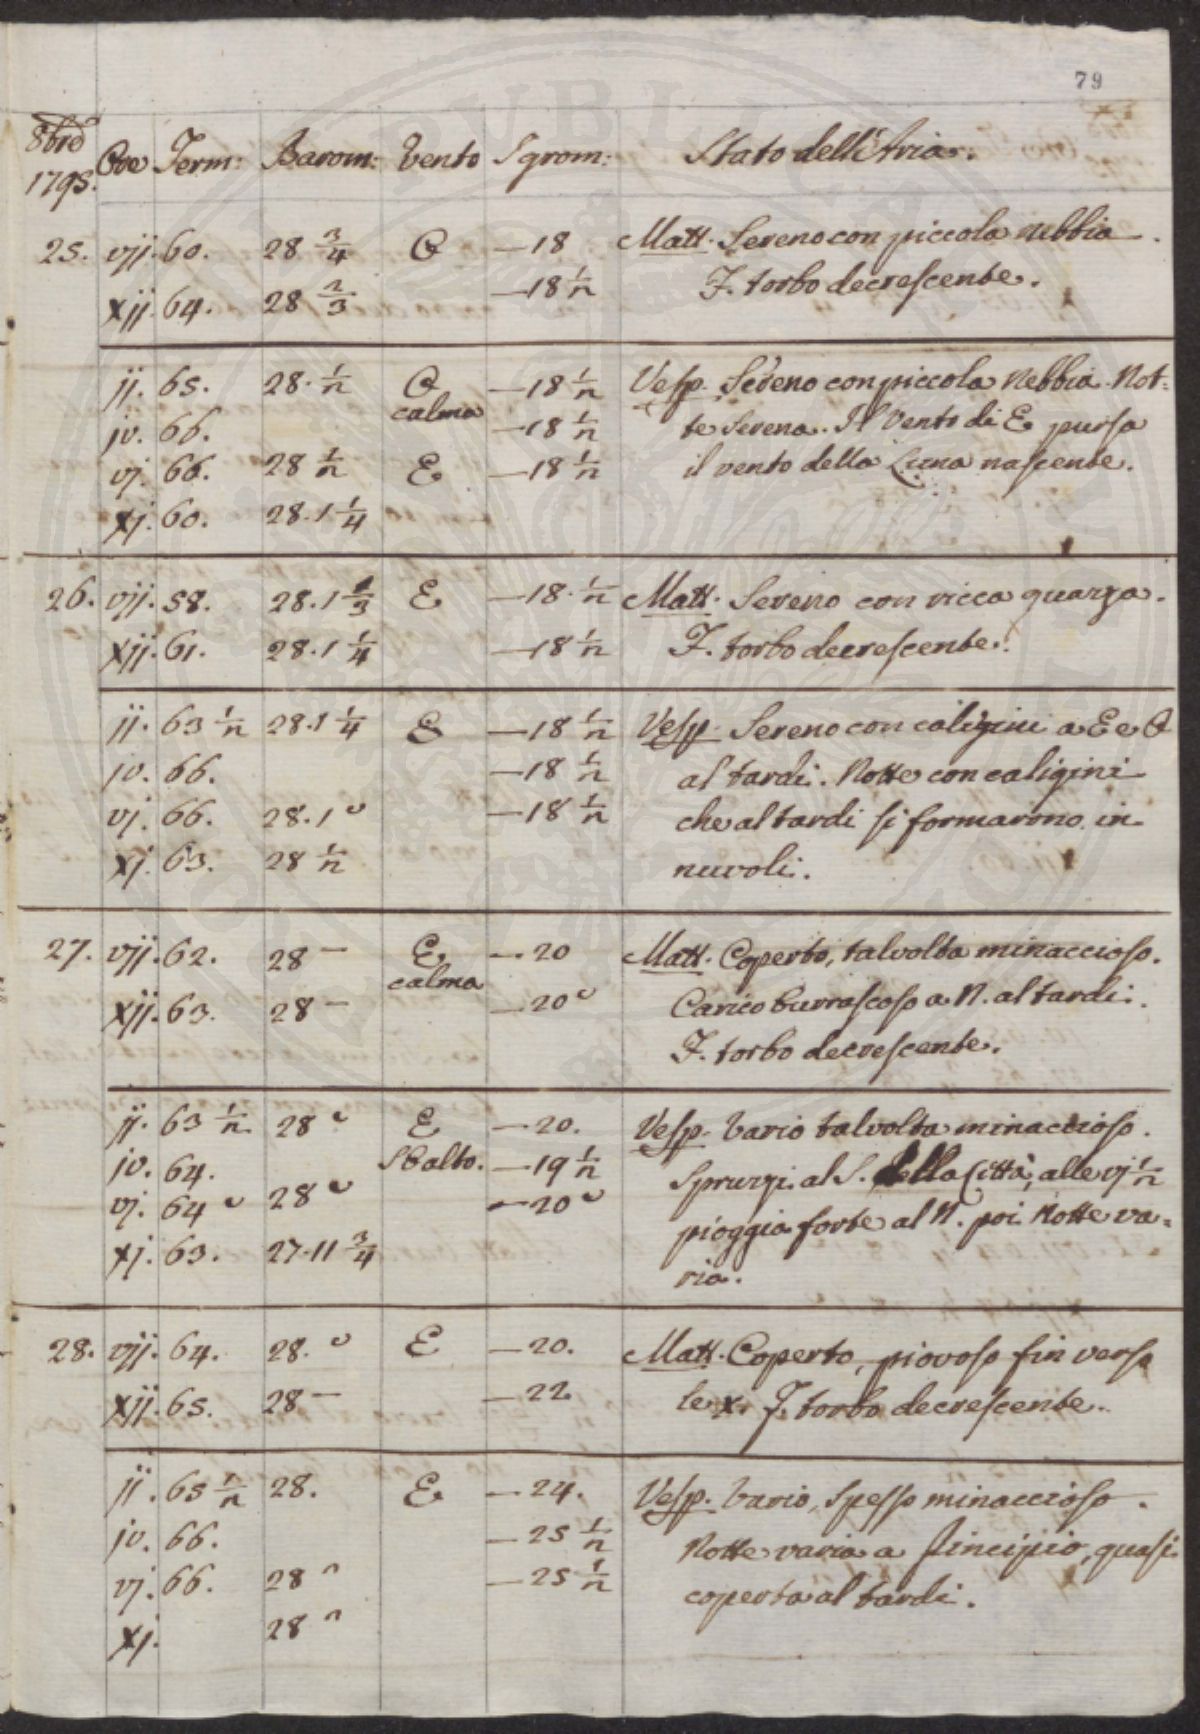 79
8bre 1795. Ore Term: Barom: Vento Igrom: Stato dell'Aria.
25. vij. 60. 28 3/4 O —18 Matt. Sereno con piccola nebbia.
xij. 64. 28 2/3 —18 1/2 F. torbo decrescente.
ij. 65. 28. 1/2 O —18 1/2 Vesp. Sereno con piccola Nebbia. Not=
calma
iv. 66. —18 1/2 te Serena. Il Vento di E pursa
vj. 66. 28 1/2 E —18 1/2 il vento della Luna nascente.
xj. 60. 28.1 1/4
26. vij. 58. 28.1 1/3 E —18. 1/2 Matt. Sereno con ricca guarza.
xij. 61. 28.1 1/4 —18 1/2 F. torbo decrescente.
ij. 63 1/2 28.1 1/4 E —18 1/2 Vesp. Sereno con caligini a E e O
iv. 66. —18 1/2 al tardi. Notte con caligini
vj. 66. 28.1 —18 1/2 che al tardi si formarono in
xj. 63. 28 1/2 nuvoli.
27. vij. 62. 28 — E —20 Matt. Coperto, talvolta minaccioso.
calma
xij. 63. 28 — —20 Carico burrascoso a N. al tardi.
F. torbo decrescente.
ij. 63 1/2. 28 E —20. Vesp. Vario talvolta minaccioso.
iv. 64. S6 alto. —19 1/2 Spruzzi al S. della Città, alle vj 1/2
vj. 64 28 —20 pioggia forte al N. poi Notte va=
xj. 63. 27.11 3/4 ria.
28. vij. 64. 28. E —20. Matt. Coperto, piovoso fin verso
xij. 65. 28 — —22 le x. F. torbo decrescente.
ij. 65 1/2 28. E —24. Vesp. Vario, spesso minaccioso.
iv. 66. —25 1/2 Notte varia a principio, quasi
vj. 66. 28 —25 1/2 coperta al tardi.
xj. 28